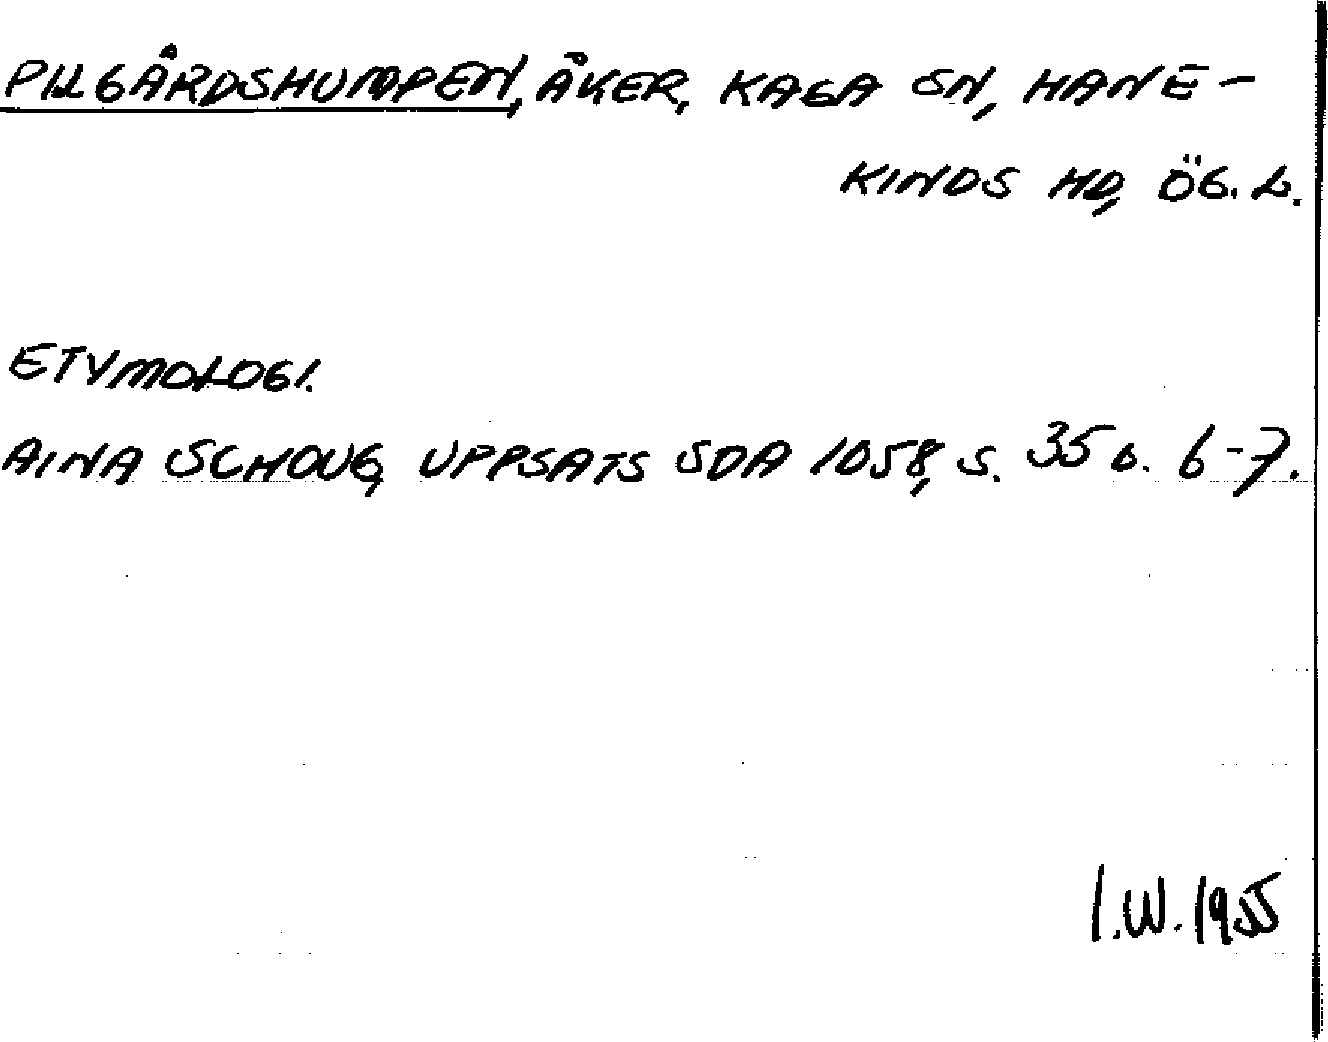 PILGÅRDSHUMPEN, ÅKER, KAGA SN, HANE-
KINDS HD, ÖG. L.
ETYMOLOGI.
AINA SCHOUG, UPPSATS SDA 1058, S. 35 o. 6-7.
I.W. 1955